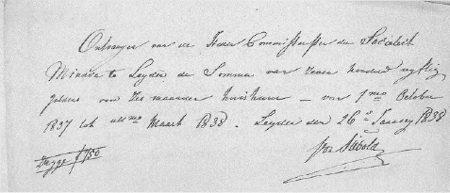 Ontvangen van de Heer Commissaris der Societeit
Minerva te Leyden de Somma van zeven honderd vyftig
guldens voor zes maanden huishuur – van 1mo October
1837 tot ult mo Maart 1838. Leyden den 26 January 1838
Zegge f 750
von Siebold